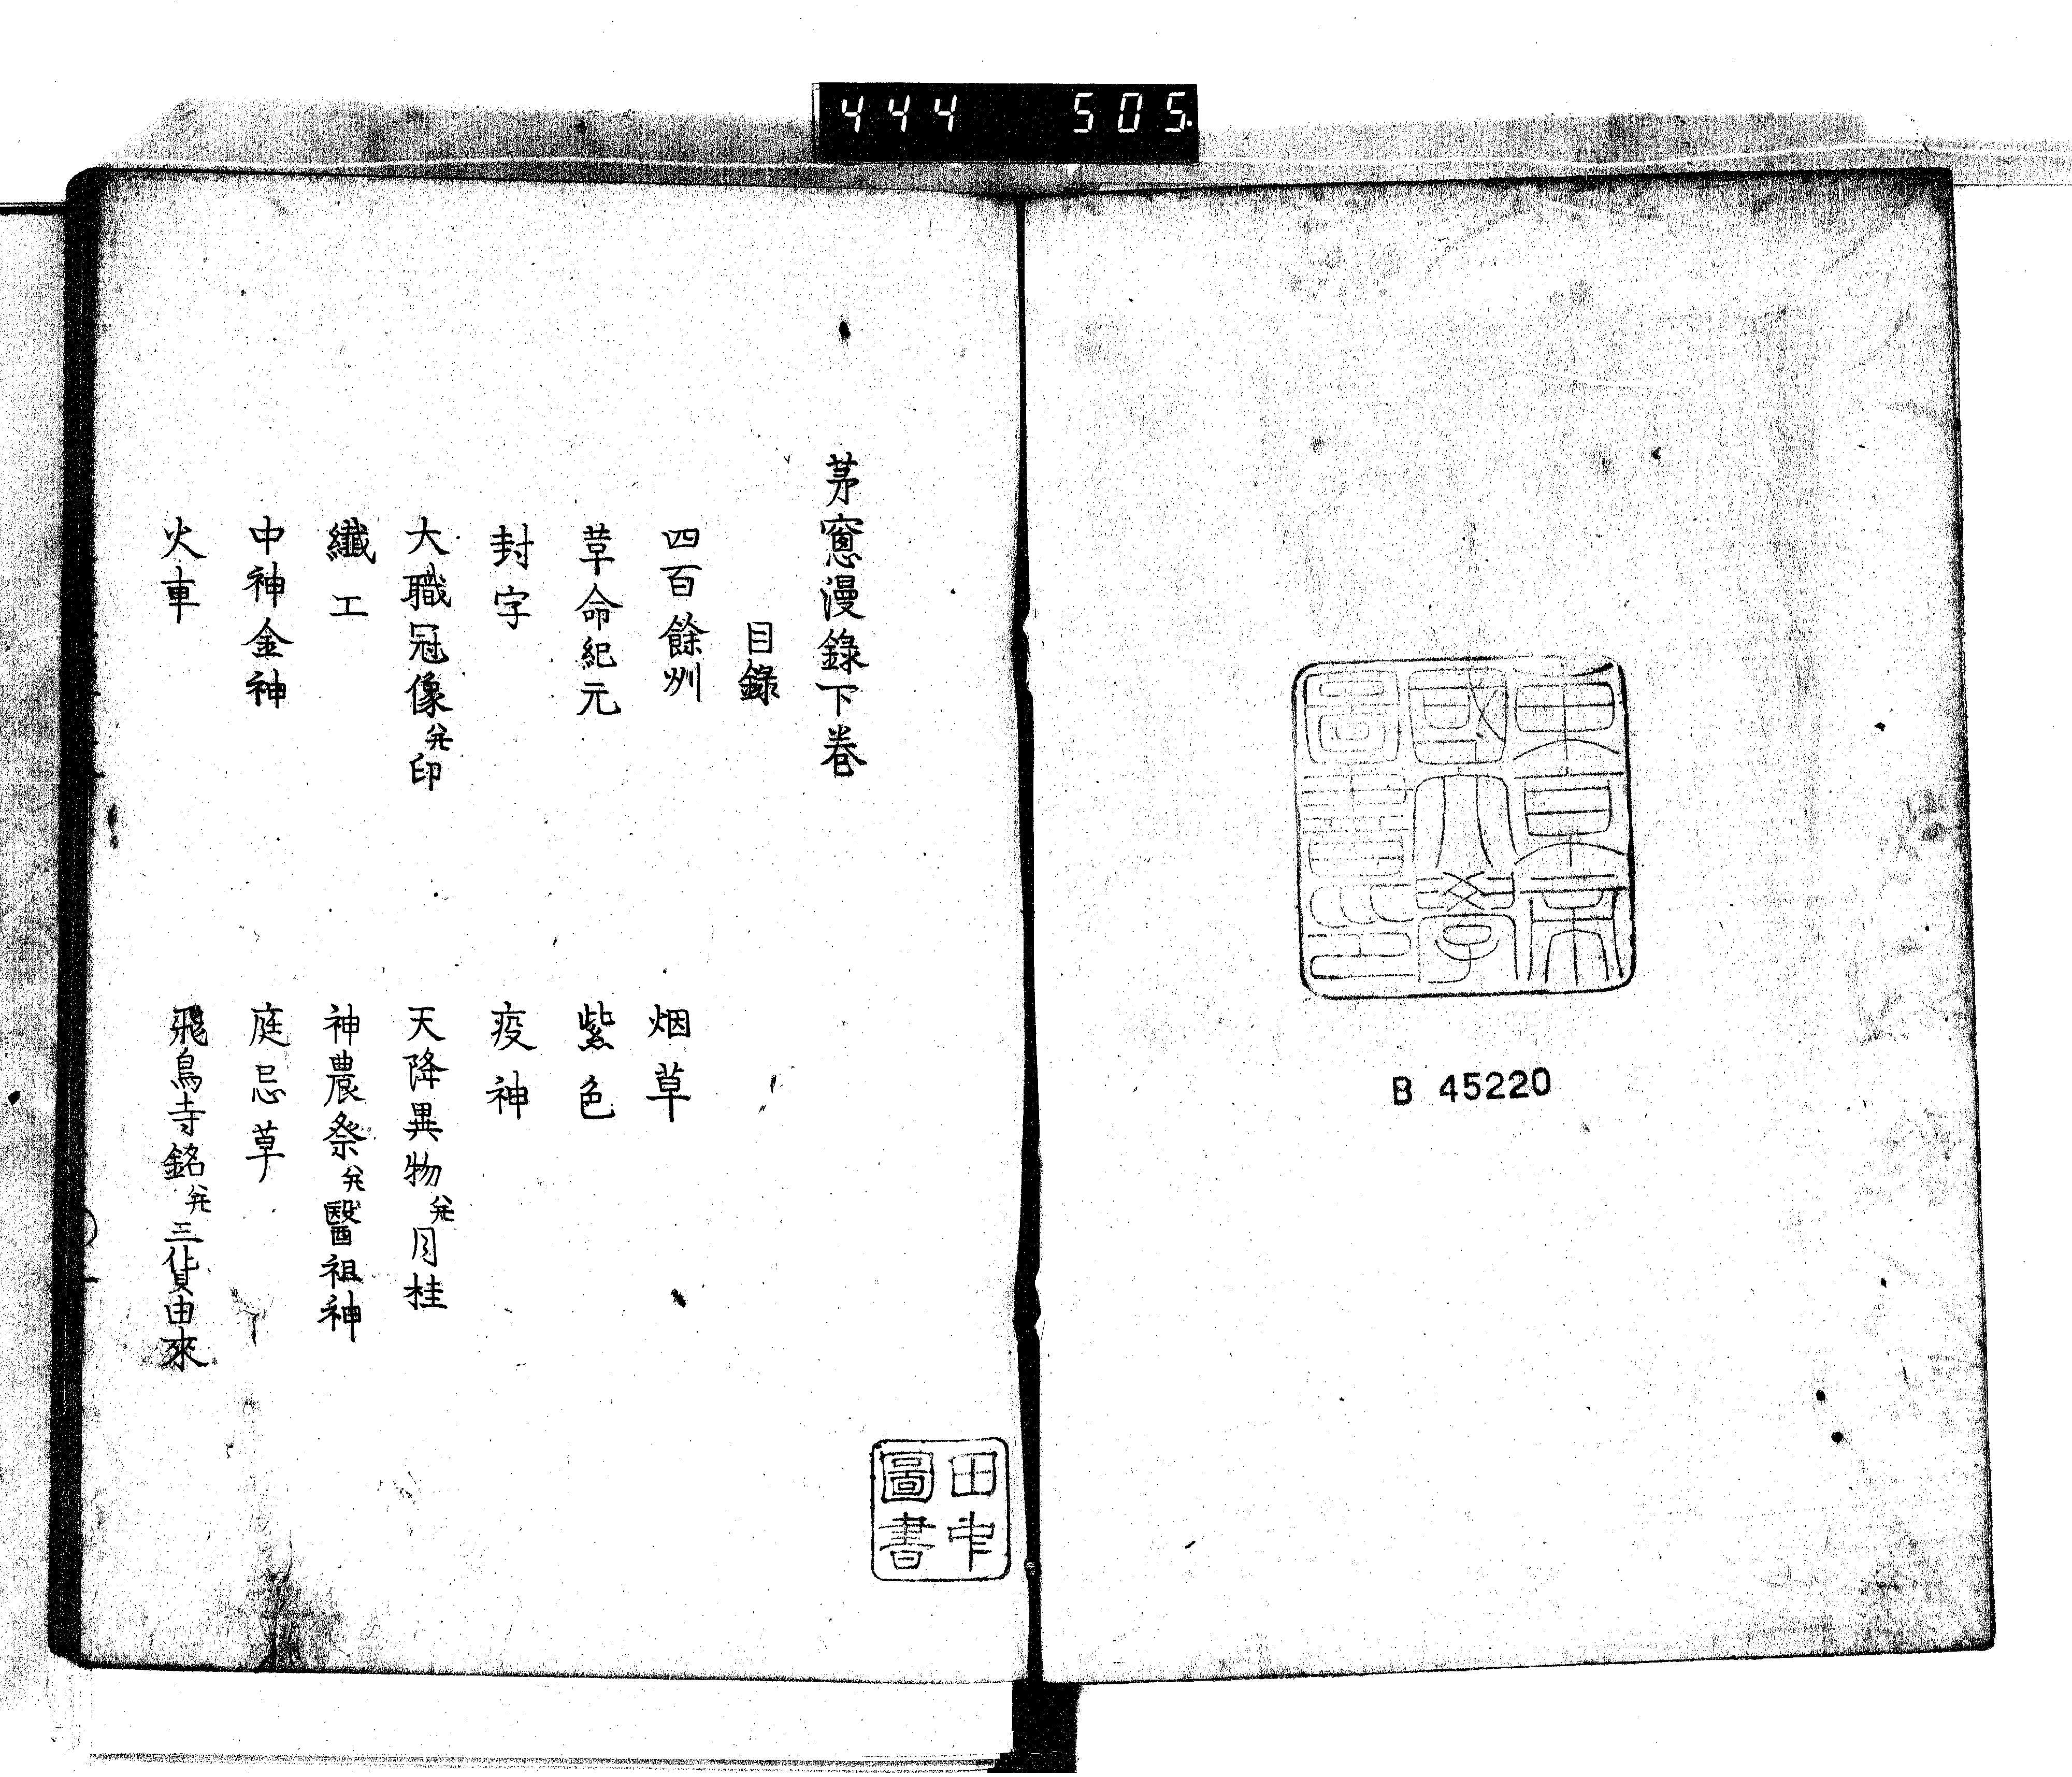 444 505.
東京帝
國大學
圖書之印
B 45220
茅窻漫錄下巻
目錄
四百餘州
烟草
草命紀元
紫色
封字
疫神
大職冠像并印
天降異物并月桂
纖工
神農祭并醫祖神
中神金神
庭忌草
火車
飛鳥寺銘并三貨由來
田中
圖書